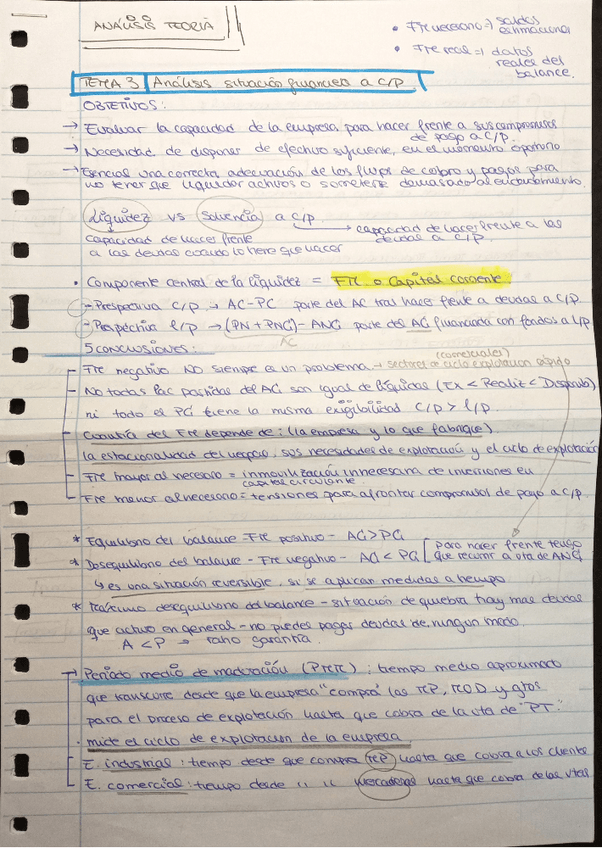 ANÁLISIS TEORÍA
• FM necesario => saldos estimaciones
• FM real => datos reales del balance.
TEMA 3 Análisis situación financiera a C/P
OBJETIVOS:
→ Evaluar la capacidad de la empresa para hacer frente a sus compromisos de pago a C/P.
→ Necesidad de disponer de efectivo suficiente, en el momento oportuno
→ Esencial una correcta adecuación de los flujos de cobro y pagos para
no tener que liquidar activos o someterte demasiado al endeudamiento.
Liquidez vs Solvencia a C/P.
capacidad de hacer frente
a las deudas cuando lo tiene que hacer
→ capacidad de hacer frente a las deudas a C/P.
• Componente central de la liquidez = FM o Capital corriente.
- Perspectiva C/P → AC-PC parte del AC tras hacer frente a deudas a C/P.
- Perspectiva l/P → (PN + PNC) - ANC parte del AC financiada con fondos a l/P
AC
5 CONCLUSIONES:
- FM negativo NO siempre es un problema → sectores de ciclo explotación rápido (comerciales)
- No todas las partidas del AC son igual de líquidas (Ex < Realiz < Disponib),
ni todo el PC tiene la misma exigibilidad C/P > l/p.
- Cuantía del FM depende de: (la empresa y lo que fabrique)
la estacionalidad del negocio, sus necesidades de explotación y el ciclo de explotación
- FM mayor al necesario = inmovilización innecesaria de inversiones en
capital circulante.
- FM menor al necesario = tensiones para afrontar compromisos de pago a C/P.
* Equilibrio del balance = FM positivo - AC > PC
* Desequilibrio del balance - FM negativo - AC < PC [para hacer frente tengo que recurrir a vta de ANC
↳ es una situación reversible, si se aplican medidas a tiempo
* Máximo desequilibrio del balance - situación de quiebra hay mas deudas
que activo en general - no puedes pagar deudas de ningun modo.
A < P → ratio garantía.
→ Periodo medio de maduración (PMM): tiempo medio aproximado
que transcurre desde que la empresa "compra" las MP, MOD y gtos
para el proceso de explotación hasta que cobra de la vta de "PT".
. mide el ciclo de explotación de la empresa
E. industrial: tiempo desde que compra MP hasta que cobra a los cliente
E. comercial: tiempo desde " " mercaderias hasta que cobra de las vtas